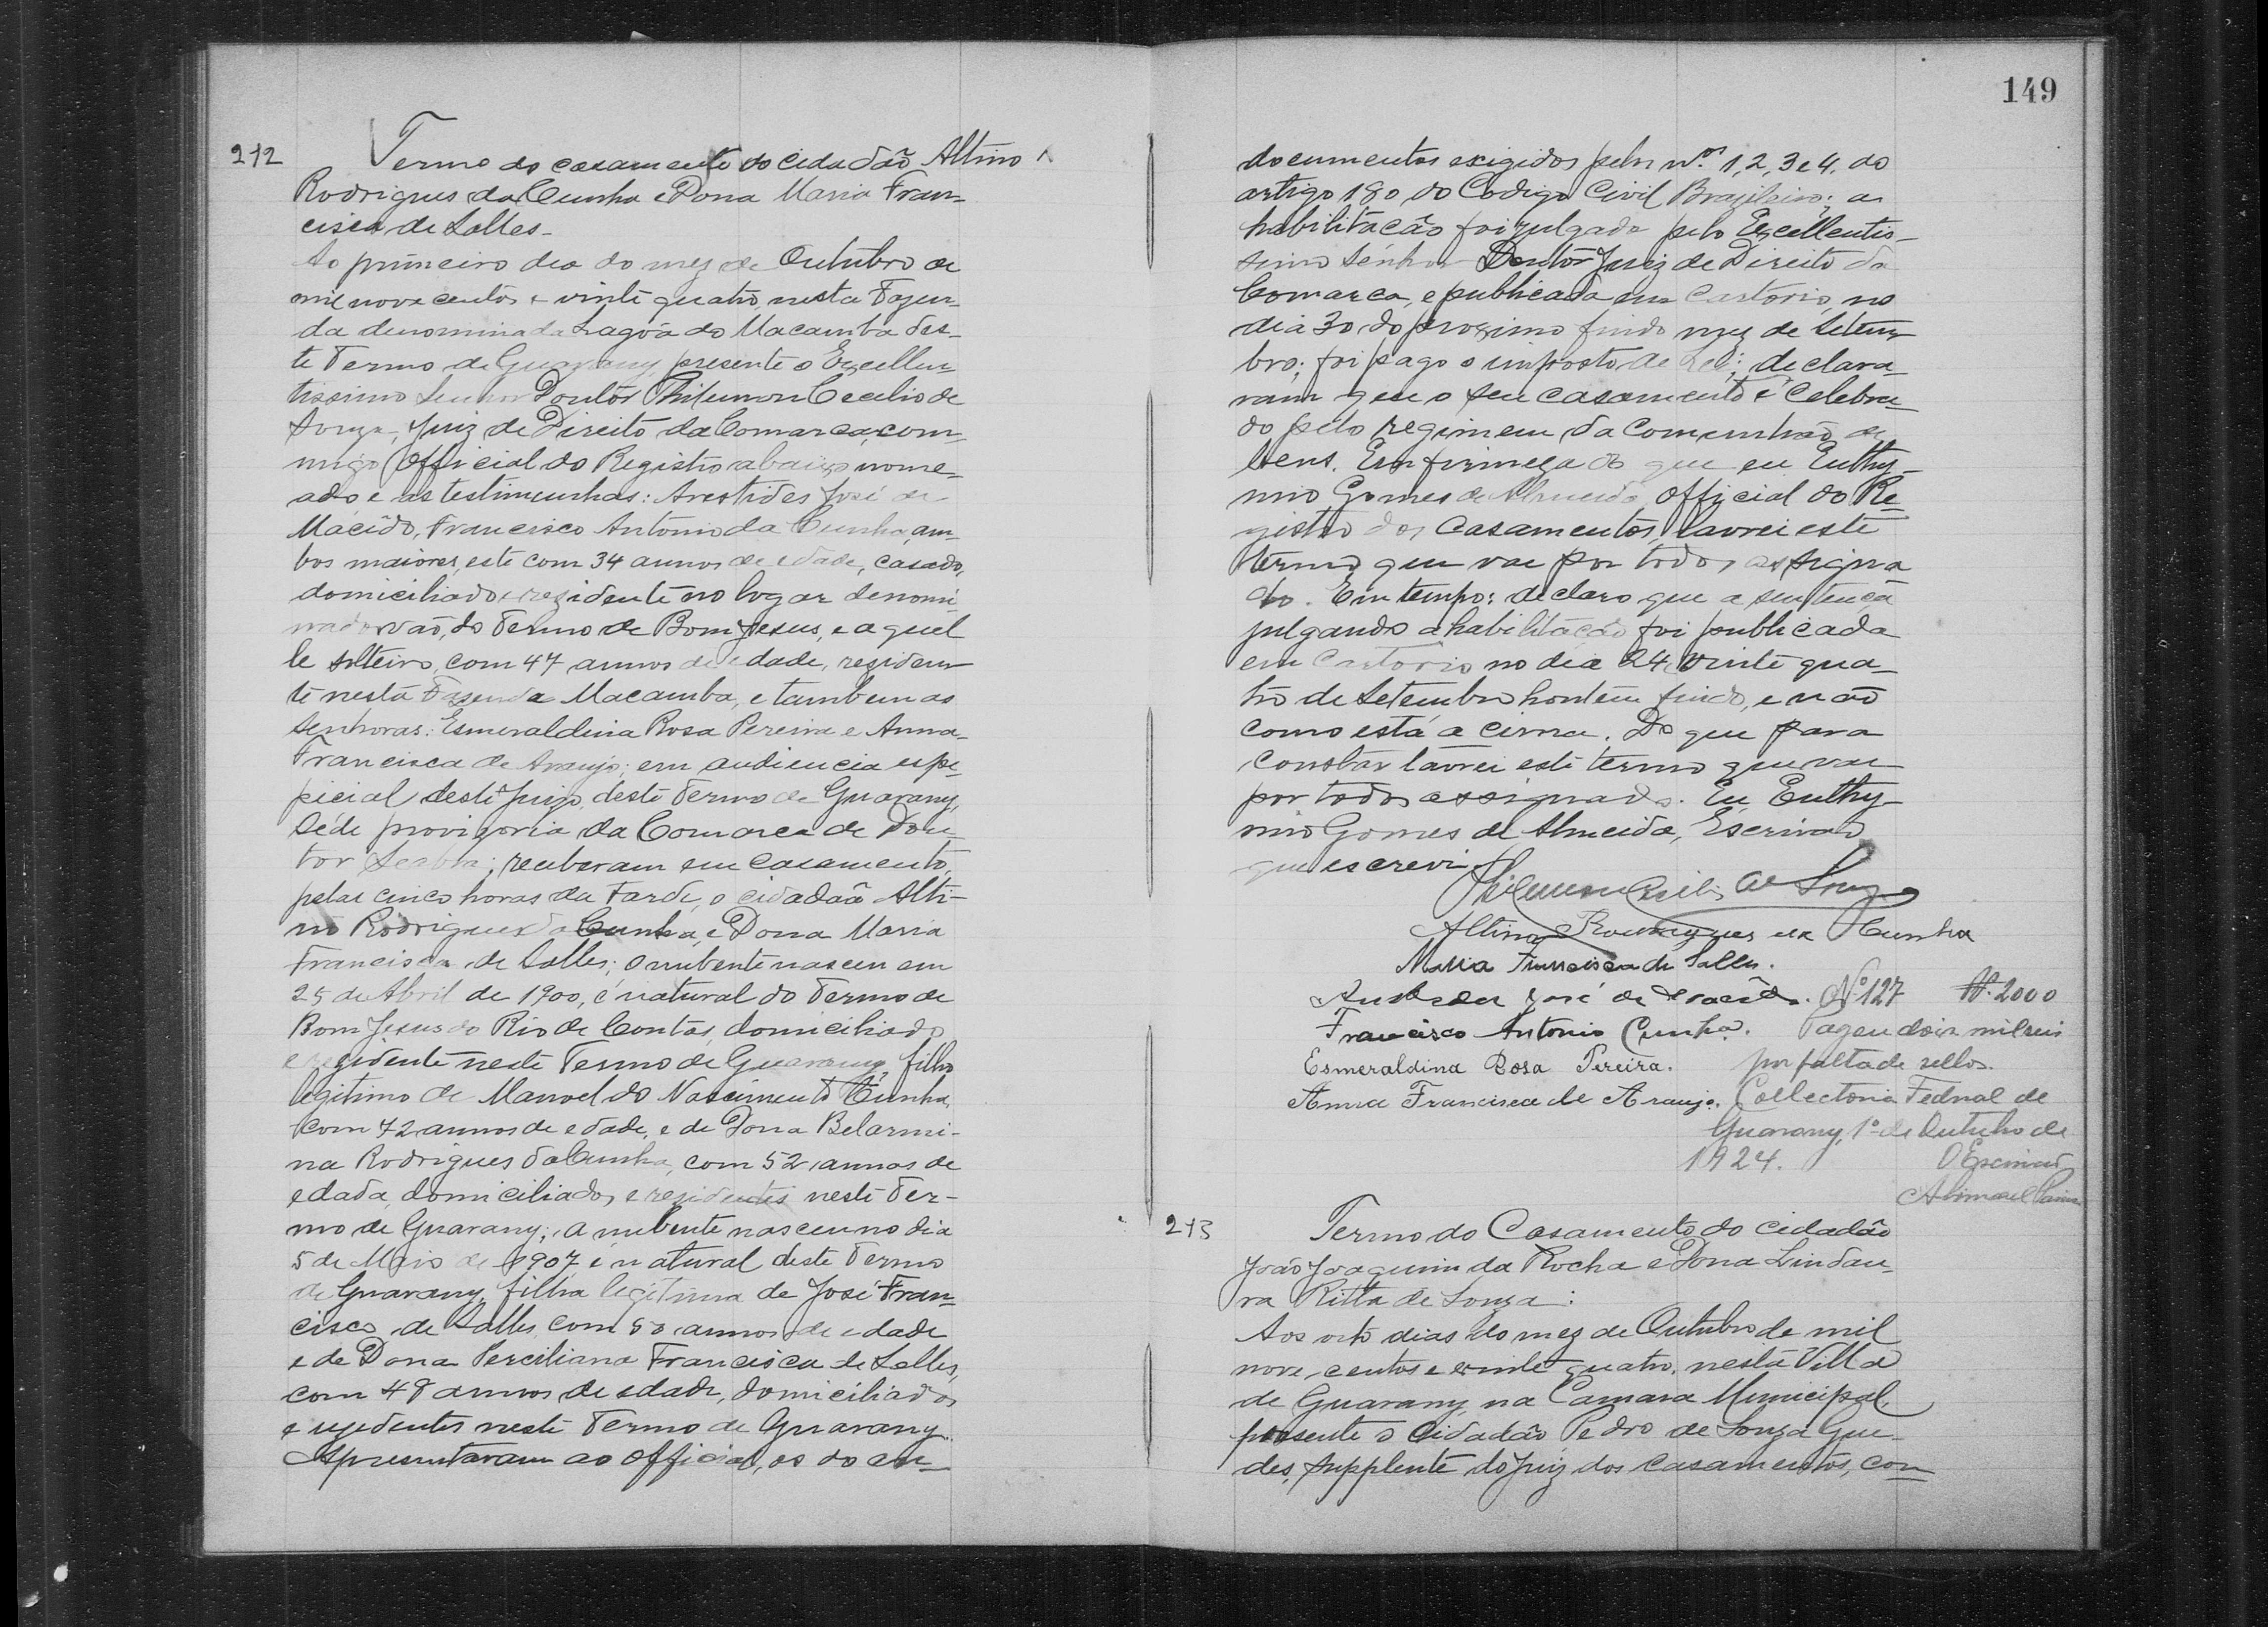 212
Termo do casamento do cidadão Altino
Rodrigues da Cunha e Dona Maria Fran-
cisca de Salles-
Ao primeiro dia do mez de Outubro de
mil nove centos e vinte quatro nesta Fazen-
da denominada Lagôa do Macamba des-
te Termo de Guarany, presente o Excellen-
tissimo Senhor Doutôr Philemon Cecilio de
Souza, Juiz de Direito da Comarca, com-
migo Official do Registro abaixo nome-
ado e as testimunhas: Arestides José de
Macêdo, Francisco Antônio da Cunha, am-
bos maiores, este com 34 annos de edade, casado,
domiciliado e rezidente no logar denomi-
nado vão, do Termo de Bom Jesus, e aquel
le solteiro, com 47 annos de edade, reziden-
te nesta Fazenda Macamba, e tambem as
Senhoras: Esmeraldina Rosa Pereira e Anna
Francisca de Araujo; em audiencia espe-
picial deste Juizo, deste Termo de Guarany,
séde provizoria da Comarca de Dou-
tor Seabra; receberam em casamento,
pelas cinco horas da Tarde, o cidadão Alti-
no Rodrigues da Cunha, e Dona Maria
Francisca de Salles; o nubente nasceu em
25 de Abril de 1900, é natural do Termo de
Bom Jesus do Rio de Contas, domiciliado
e rezidente neste Termo de Guarany, filho
legitimo de Manoel do Nascimento Cunha,
com 72 annos de edade, e de Dona Belarmi-
na Rodrigues da Cunha, com 52 annos de
edada, domiciliados e rezidentes neste Ter-
mo de Guarany; A nubente nasceu no dia
5 de Maio de 1907, é natural deste Termo
de Guarany, filha legitima de José Fran-
cisco de Salles, com 50 annos de edade
e de Dona Perciliana Francisca de Salles,
com 48 annos de edade, domiciliados
e rezidentes neste Termo de Guarany.
Apresentaram ao Official, os do cu-
149
documentos exigidos pelos nºs 1, 2, 3 e 4, do
artigo 180 do Codigo Civil Brazileiro; a
habilitação foi julgada pelo Excellentis-
simo Senhor Doutôr Juiz de Direito da
Comarca, e publicada em Cartorio, no
dia 30 do proximo findo mez de Setem-
bro; foi pago o imposto de Lei; declara-
ram que o seu casamento é celebra-
do pelo regimem da Comunhão de
bens. Em firmeza do que eu Euthy-
mio Gomes de Almeida, Official do Re-
gistro dos Casamentos, lavrei este
termo que vae por todos assigna
do. Em tempo: declaro que a sentença
julgando a habilitação foi publicada
em Cartorio no dia 24, vinte qua-
tro de Setembro hontem findo, e não
como está a cima. Do que para
constar lavrei este termo que vae
por todos assignado. Eu, Euthy-
mio Gomes de Almeida, Escrivão
que escrevi.
Philemon Cecilio de Souza
Altino Rodrigues da Cunha
Maria Francisca de Salles.
José de Macêdo. Nº 127 2000
Francisco Antonio Cunha. Pagou dois mil reis
Esmeraldina Rosa Pereira. por falta de sellos.
Anna Francisca de Araujo. Collectoria Federal de
Guarany, 1º de Outubro de
1924. O Escrivão
213
Termo do Casamento do cidadão
João Joaquim da Rocha e Dona Lindau-
ra Ritta de Souza:
Aos oito dias do mez de Outubro de mil
nove, centos e vinte quatro, nesta Villa
de Guarany, na Camara Municipal,
presente o Cidadão Pedro de Souza Gue-
des, supplente do Juiz dos casamentos, com